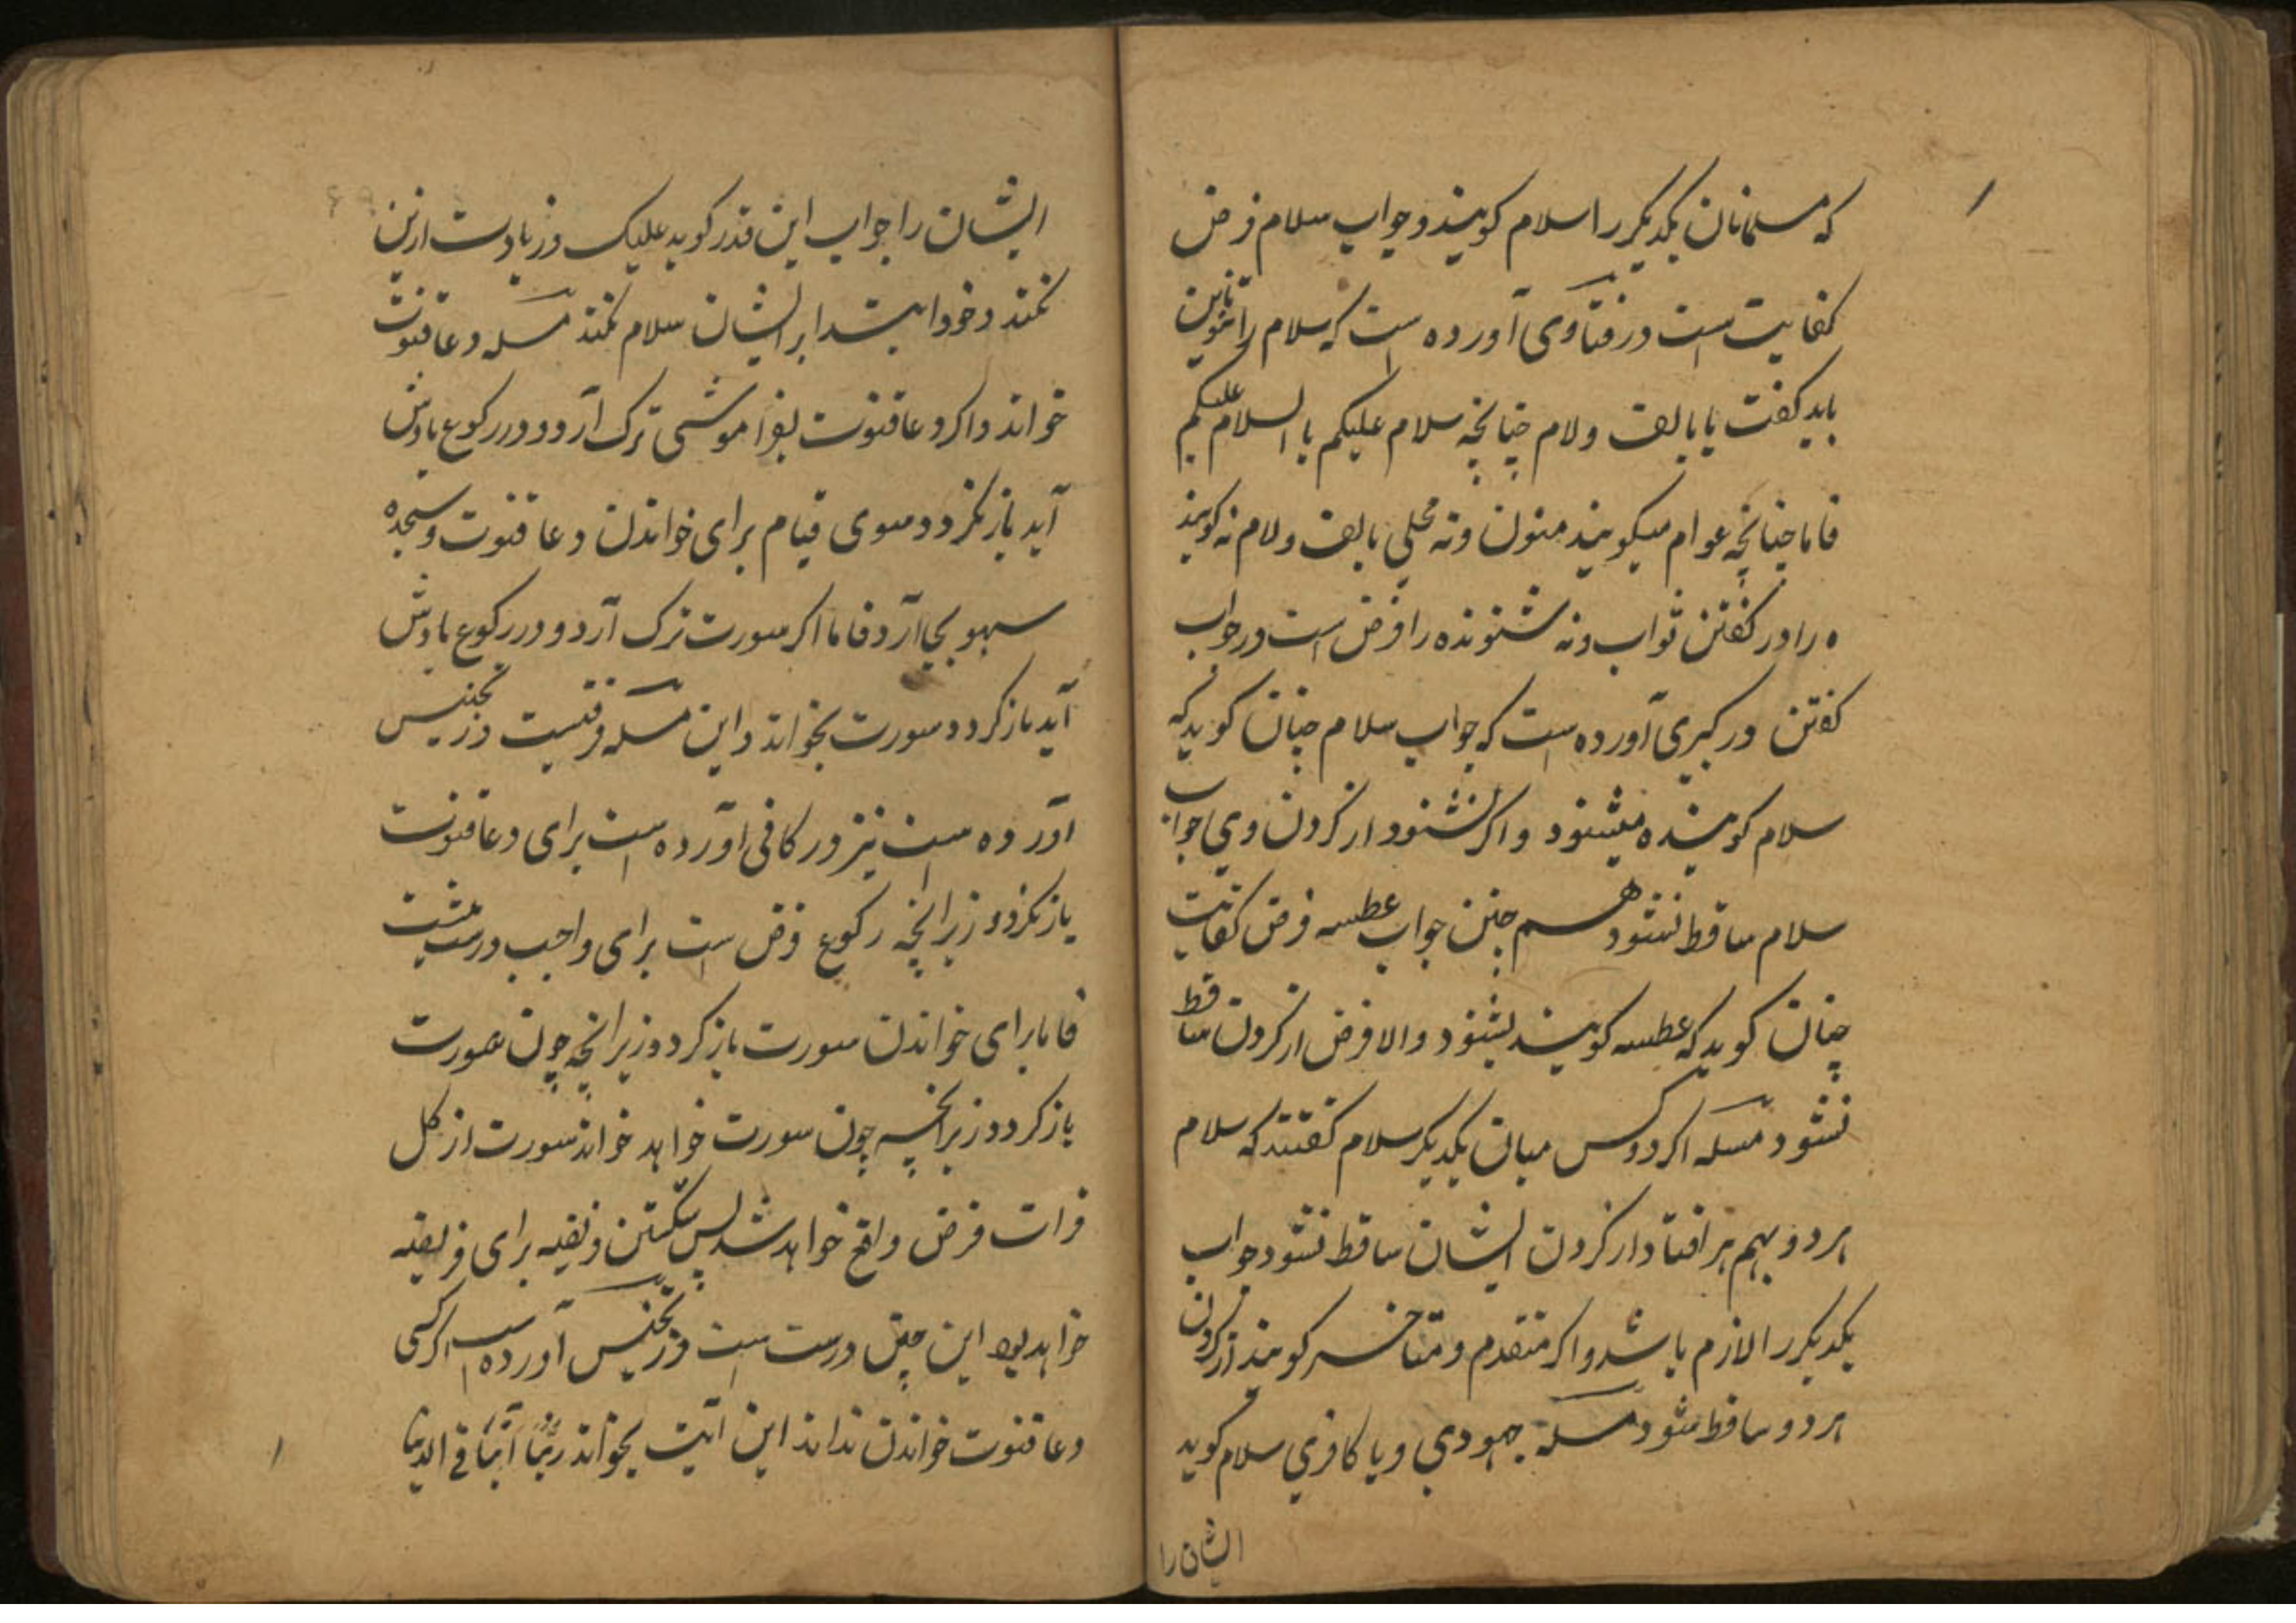 که مسلمانان یکدیگر را سلام کویند و جواب سلام فرض
کفایت است در فتاوی آورده است که سلام را تنوین
باید کفت یا بالف ولام چنانچه سلام علیکم یا السلام علیکم
فاما چنانچه عوام میکویند منون ونه محلی بالف ولام نه کوینده
را در کفتن ثواب ونه شنونده را فرض است در جواب
کفتن در کبیری آورده است که جواب سلام چنان کوید که
سلام کوینده بشنود واکر نشنود از کردن وی جواب
سلام ساقط نشود هم چنین جواب عطسه فرض کفایت
چنان کوید که عطسه کویند بشنود والا فرض از کردن ساقط
نشود مسله اکر دو کس میان یکدیکر سلام کفتند که سلام
هر دو بهم بر افتاد از کردن ایشان ساقط نشود جواب
یکدیکر را لازم باشد واکر متقدم ومتاخر کویند از کردن
هر دو ساقط شود مسله جهودی ویا کافری سلام کوید
ایشان را
ایشان را جواب این قدر کوید علیک وزیادت ازین
نکند وخود ابتدا بر ایشان سلام نکند مسله دعا قنوت
خواند واکر دعا قنوت بفراموشی ترک آرد ودر رکوع یادش
آید باز نکردد سوی قیام برای خواندن دعا قنوت وسجده
سهو بجا آرد فاما اکر سورت ترک آرد ودر رکوع یادش
آید باز کردد سورت بخواند واین مسله فرقیست در تجنیس
آورده است نیز در کافی آورده است برای دعا قنوت
باز نکردد زیرانچه رکوع فرض است برای واجب درست نیست
فاما برای خواندن سورت باز کردد زیرانچه چون سورت
باز کردد زیرانچه چون سورت خواهد خواند سورت از کل
قرات فرض واقع خواهد شد پس شکستن فریضه برای فریضه
خواهد بود این چنین درست است در تجنیس آورده است اکر کسی
دعا قنوت خواندن نداند این آیت بخواند ربنا آتنا فی الدنیا